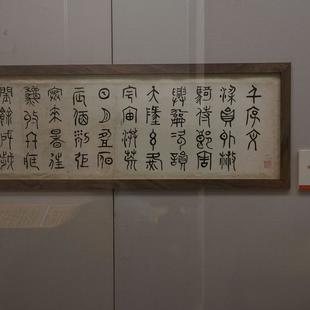 千字文
梁員外散
騎侍郎周
興嗣次韻
天地玄黃
宇宙洪荒
日月盈昃
辰宿列張
寒來暑往
秋收冬藏
閏餘成歲